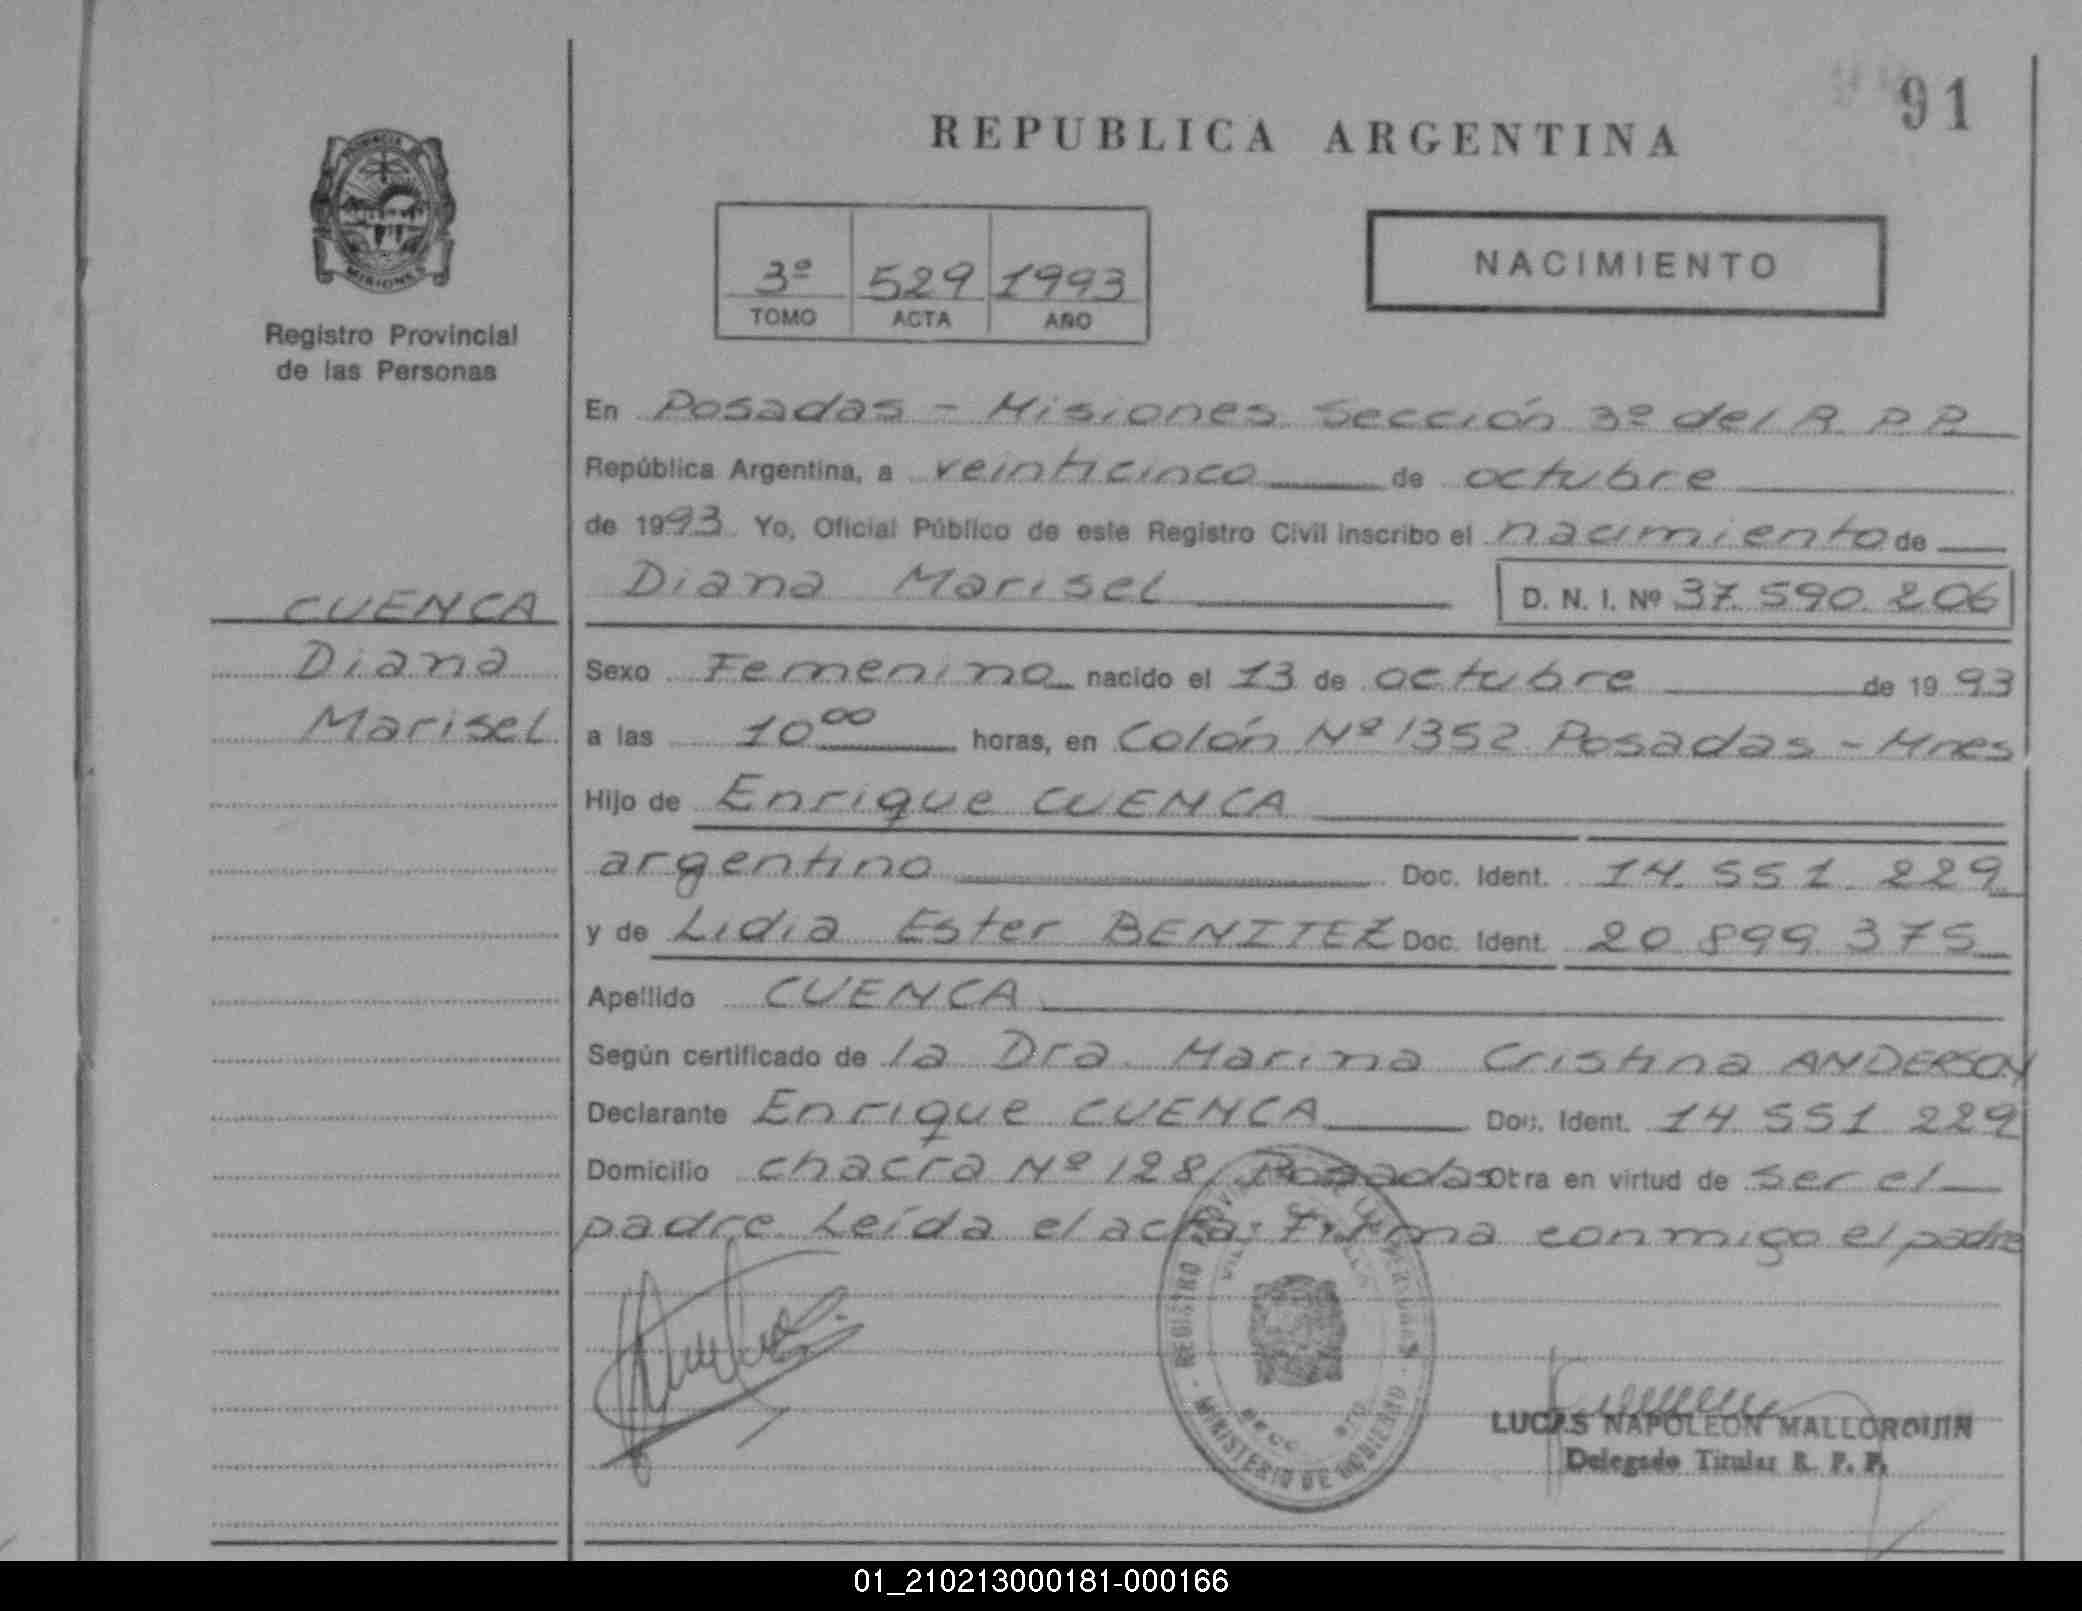 91
REPUBLICA ARGENTINA
PROVINCIA
MISIONES
Registro Provincial
de las Personas
3º 529 1993
TOMO ACTA AÑO
NACIMIENTO
En Posadas - Misiones Sección 3º del R P P
República Argentina, a veinticinco de octubre
de 1993 Yo, Oficial Público de este Registro Civil inscribo el nacimiento de
Diana Marisel D. N. I. Nº 37.590.206
CUENCA
Diana
Marisel
Sexo Femenino nacido el 13 de octubre de 1993
a las 10 00 horas, en Colón Nº 1352 Posadas - Mnes
Hijo de Enrique CUENCA
argentino Doc. Ident. 14.551.229
y de Lidia Ester BENITEZ Doc. Ident. 20 899 375
Apellido CUENCA
Según certificado de la Dra. Marina Cristina ANDERSON
Declarante Enrique CUENCA Doc. Ident. 14 551 229
Domicilio chacra Nº 128, Posadas Obra en virtud de ser el
padre Leída el acta: Firma conmigo el padre
REGISTRO PROVINCIAL DE LAS PERSONAS
MINISTERIO DE GOBIERNO
LUCAS NAPOLEON MALLORQUIN
Delegado Titular R. P. P.
01_210213000181-000166